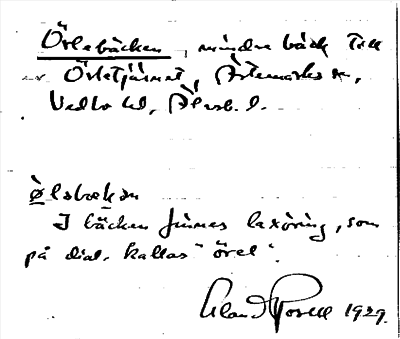 Örlebäcken, mindre bäck till
Örletjärnet, Ärtemarks sn,
Vedbo hd, Älvsb. l.
Ølsbækən
I bäcken finnes laxöring, som
på dial. kallas "örel".
1929.